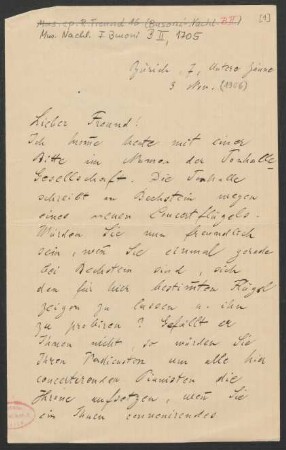 Mus. ep. R. Freund 16 (Busoni-Nachl. B II)
[1]
Mus. Nachl. F. Busoni B II, 1705
Zürich 7, Untere Zäune
3 Nov. (1906)
Lieber Freund!
Ich komme heute mit einer
Bitte im Namen der Tonhalle-
Gesellschaft. Die Tonhalle
schreibt an Bechstein wegen
eines neuen Concertflügels.
Würden Sie nun freundlich
sein, wenn Sie einmal gerade
bei Bechstein sind, sich
den für hier bestimmten Flügel
zeigen zu lassen u. ihn
zu probiren? Gefällt er
Ihnen nicht, so würden Sie
Ihren Punkt um alle hier
concertirenden Pianisten die
Krone aufsetzen, wenn Sie
ein Ihnen convenirendes